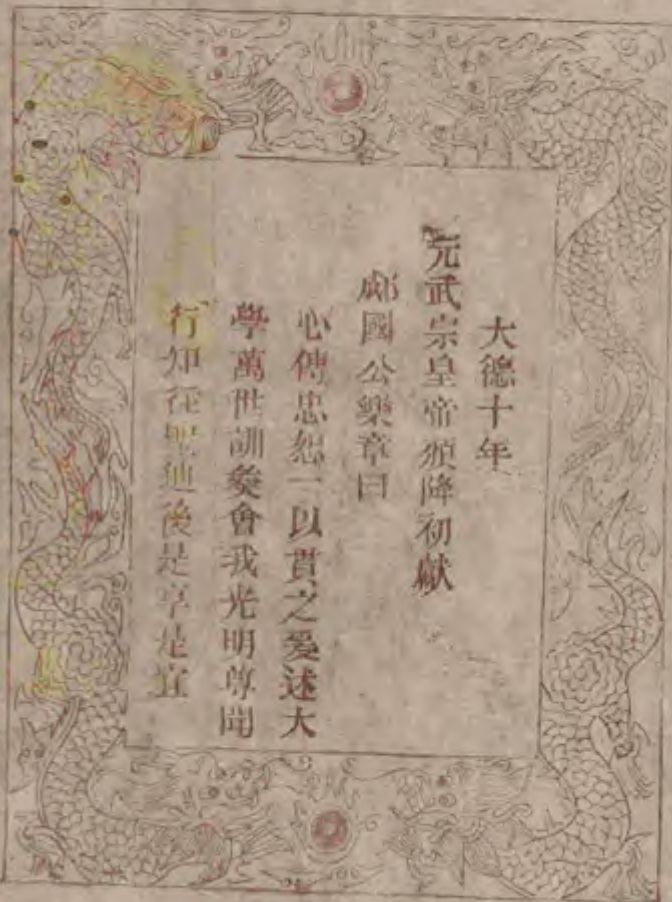 大德十年
元武宗皇帝頒降初獻
郕國公樂章曰
心傳忠恕一以貫之爰述大
學萬世訓彜會我光明尊聞
行知聖迪後是享是宜